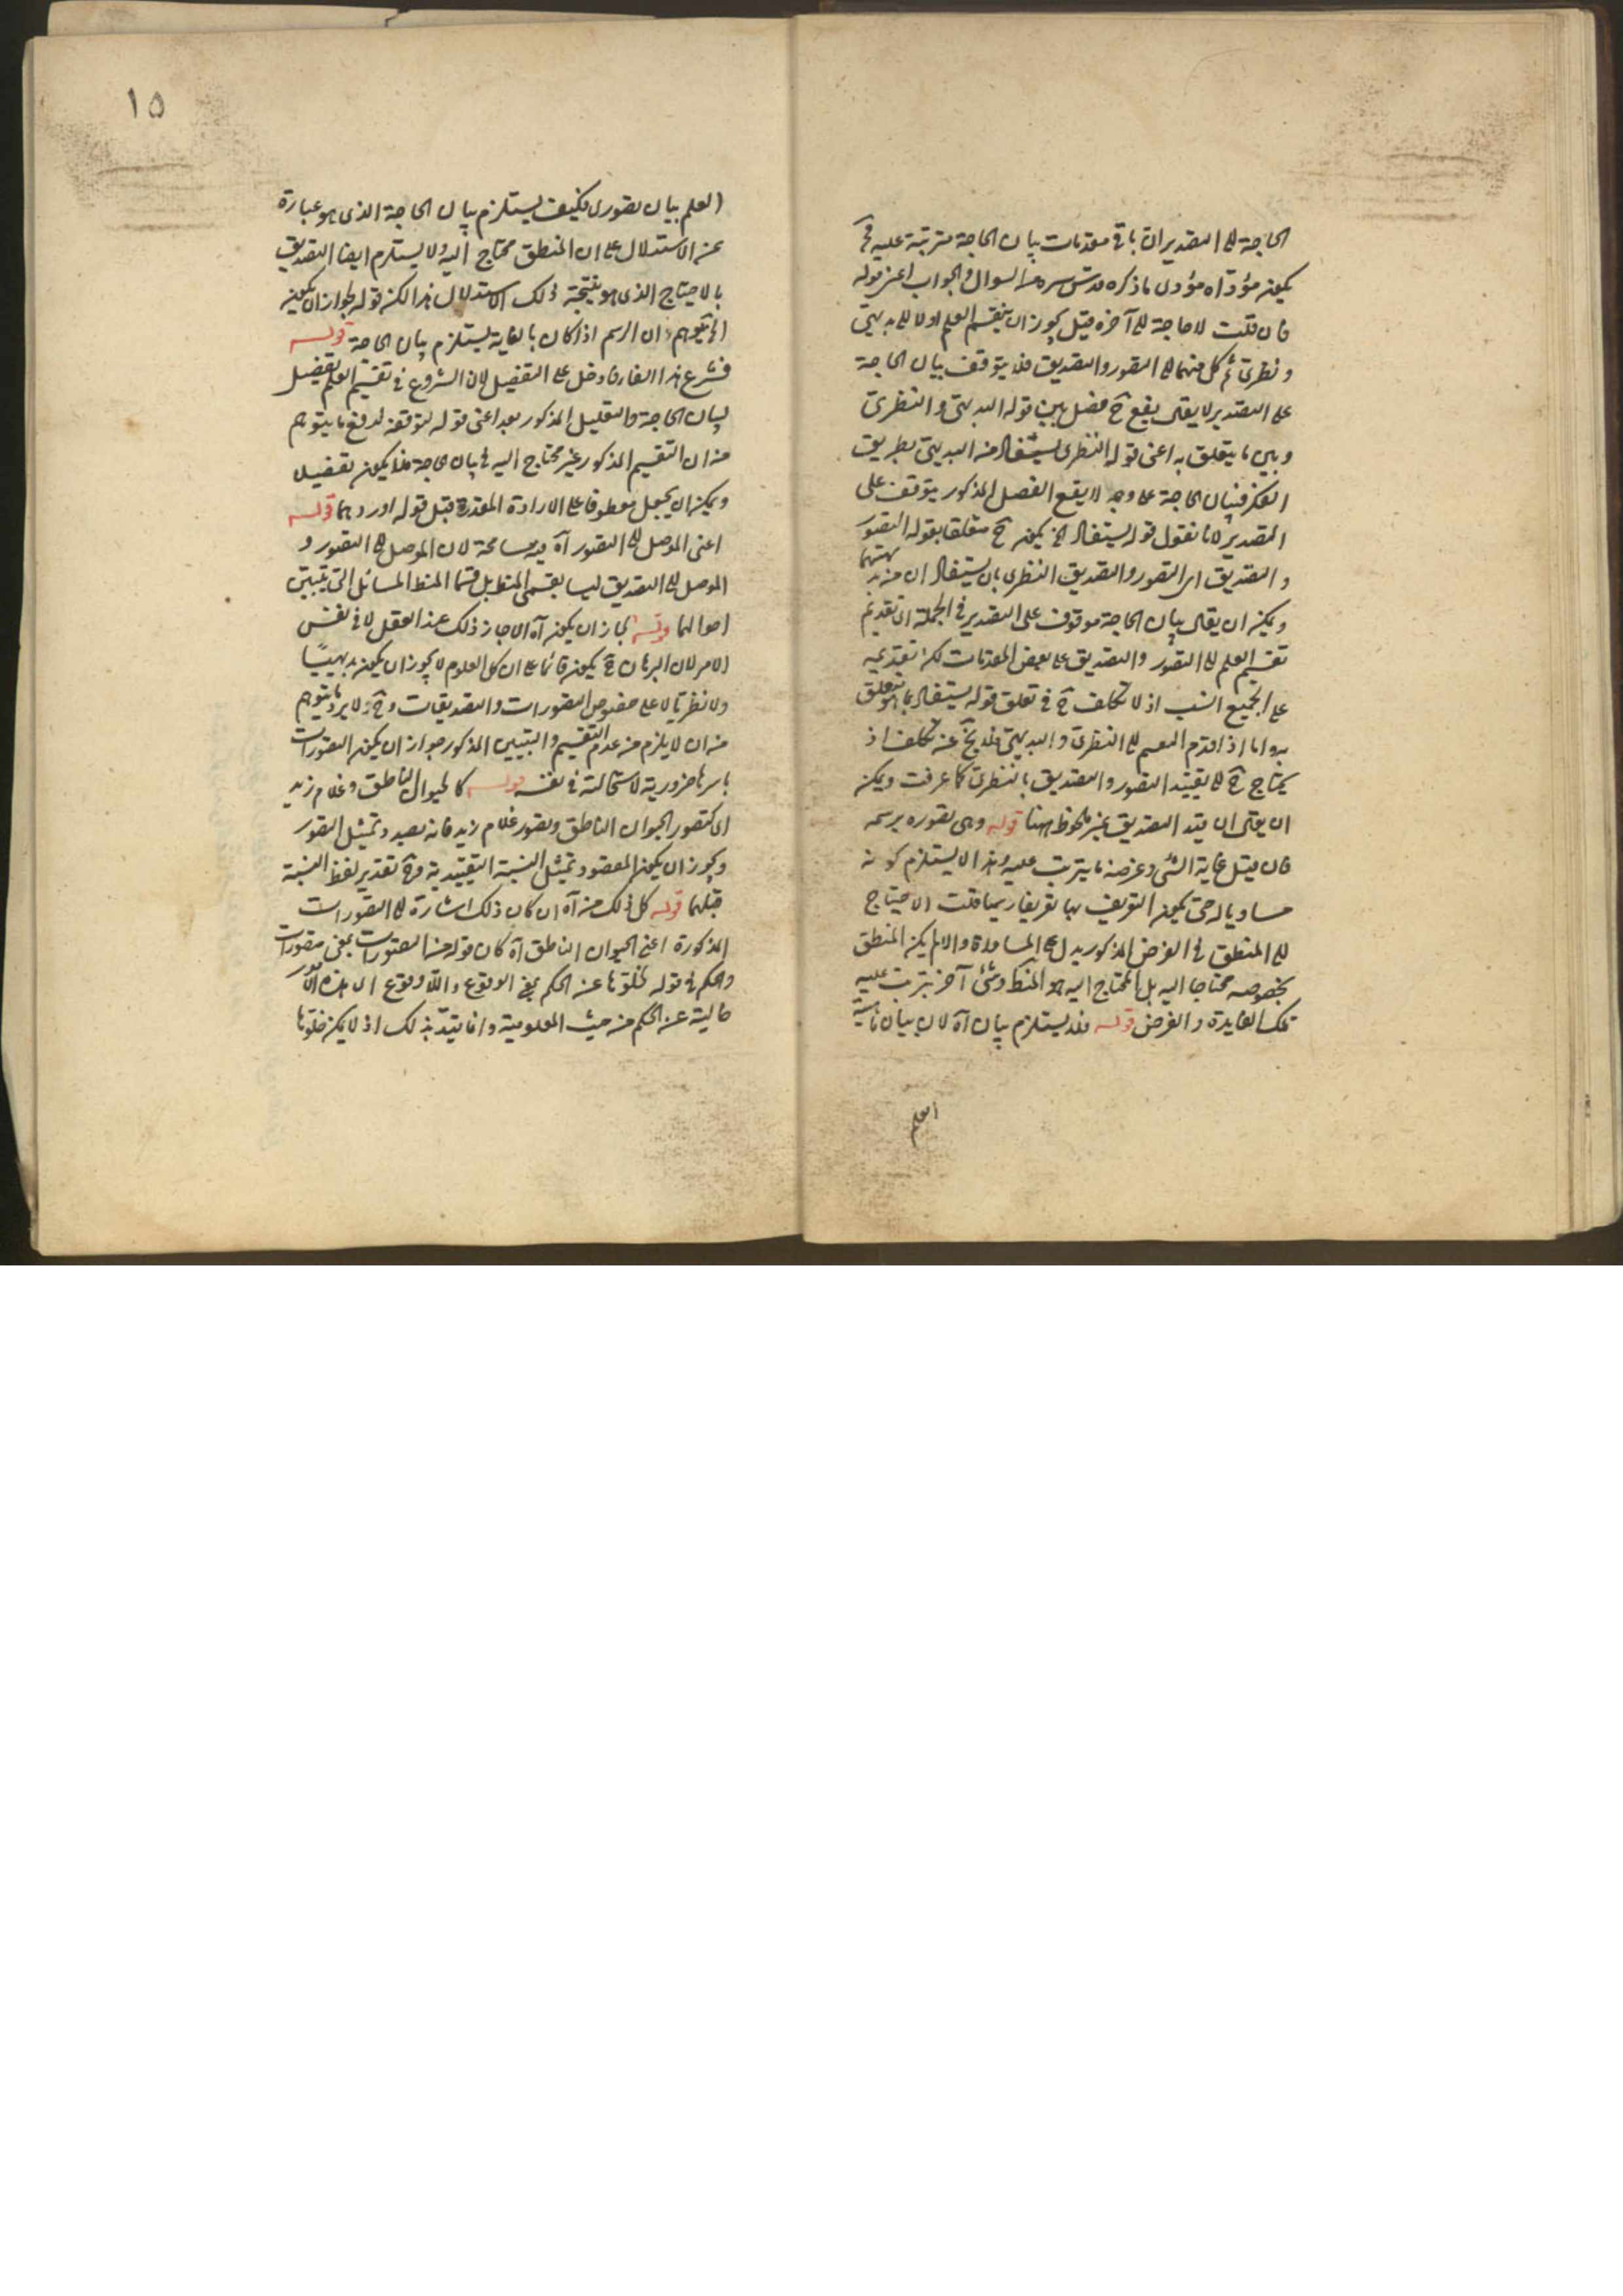 الحاجة الى التصدير ان باقى مقدمات بيان الحاجة مترتبة عليه فح
يكون مؤداه مؤدى ما ذكره قدس سره من السوال والجواب اعنى قوله
فان قلت لا حاجة الى آخره قيل يجوز ان ينقسم العلم اولا الى بديهى
ونظرى ثم كل منهما الى التصور والتصديق فلا يتوقف بيان الحاجة
على التصدير لا يقال يقع ح فصل بين قوله البديهى والنظرى
وبين ما يتعلق به اعنى قوله النظرى يستفاد من البديهى بطريق
الفكر فبيان الحاجة على وجه لا يقع الفصل المذكور يتوقف على
التصدير لانا نقول قوله يستفاد الخ يكون ح متعلقا بقوله التصور
والتصديق اى التصور والتصديق النظرى بان يستفاد ان من بديهتهما
ويمكن ان يقال بيان الحاجة موقوف على التصدير فى الجملة اى تقديم
تقسيم العلم الى التصور والتصديق على بعض المقدمات لكن تقديمه
على الجميع انسب اذ لا تكلف ح فى تعلق قوله يستفاد بما هو متعلق
به واما اذا قدم القسم الى النظرى والبديهى فلا يخ عن تكلف اذ
يحتاج ح الى تقييد التصور والتصديق بالنظرى كما عرفت ويمكن
ان يقال ان قيد التصديق غير ملحوظ ههنا قوله وهى تصوره برسمه
فان قيل غاية الشئ وغرضه ما يترتب عليه وهذا لا يستلزم كونه
مساويا له حتى يكون التعريف بها تعريفا رسميا قلت الاحتياج
الى المنطق فى الغرض المذكور يدل على المساواة والا لم يكن المنطق
بخصوصه محتاجا اليه بل المحتاج اليه هو المنطق وشئ آخر يترتب عليه
تلك الفايدة والغرض قوله فلا يستلزم بيان آه لان بيان ماهية
العلم
١٥
العلم بيان تصورى فكيف يستلزم بيان الحاجة الذى هو عبارة
عن الاستدلال على ان المنطق محتاج اليه ولا يستلزم ايضا التصديق
بالاحتياج الذى هو نتيجة ذلك الاستدلال هذا لكن قوله لجواز ان يكون
الخ يوهم ان الرسم اذا كان بالغاية يستلزم بيان الحاجة قوله
فشرع هذا الفاء فاء دخل على التفصيل لان الشروع فى تقسيم العلم تفصيل
لبيان الحاجة والتعليل المذكور بعد اعنى قوله لتوقفه لدفع ما يتوهم
من ان التقسيم المذكور غير محتاج اليه فى بيان الحاجة فلا يكون تفصيلا
ويمكن ان يجعل معطوفا على الارادة المقدرة قبل قوله اورد هما قوله
اعنى الموصل الى التصور آه فيه مسامحة لان الموصل الى التصور و
الموصل الى التصديق ليسا بقسمى المنطق بل قسما المنطق المسائل التى تتبين
احوالهما قوله لجاز ان يكون آه اى جاز ذلك عند العقل لا فى نفس
الامر لان البرهان ح يكون قائما على ان كل العلوم لا يجوز ان يكون بديهيًا
ولا نظريا لا على خصوص التصورات والتصديقات وح لا يرد ما يتوهم
من ان لا يلزم من عدم التقسيم والتبيين المذكور جواز ان يكون التصورات
باسرها ضرورية لاستحالته فى نفسه قوله كالحيوان الناطق وغلام زيد
اى كتصور الحيوان الناطق وتصور غلام زيد فانه بصدد تمثيل التصور
ويجوز ان يكون المقصود تمثيل النسبة التقييدية وح تقدير لفظ النسبة
قبلهما قوله كل ذلك من آه ان كان ذلك اشارة الى التصورات
المذكورة اعنى الحيوان الناطق آه كان قوله من التصورات بمعنى متصورات
والحكم فى قوله لخلوها عن الحكم بمعنى الوقوع واللا وقوع اى هذه الامور
خالية عن الحكم من حيث المعلومية وانما قيد بذلك اذ لا يمكن خلوها